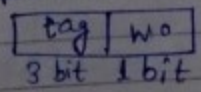 tag wo
3 bit 1 bit